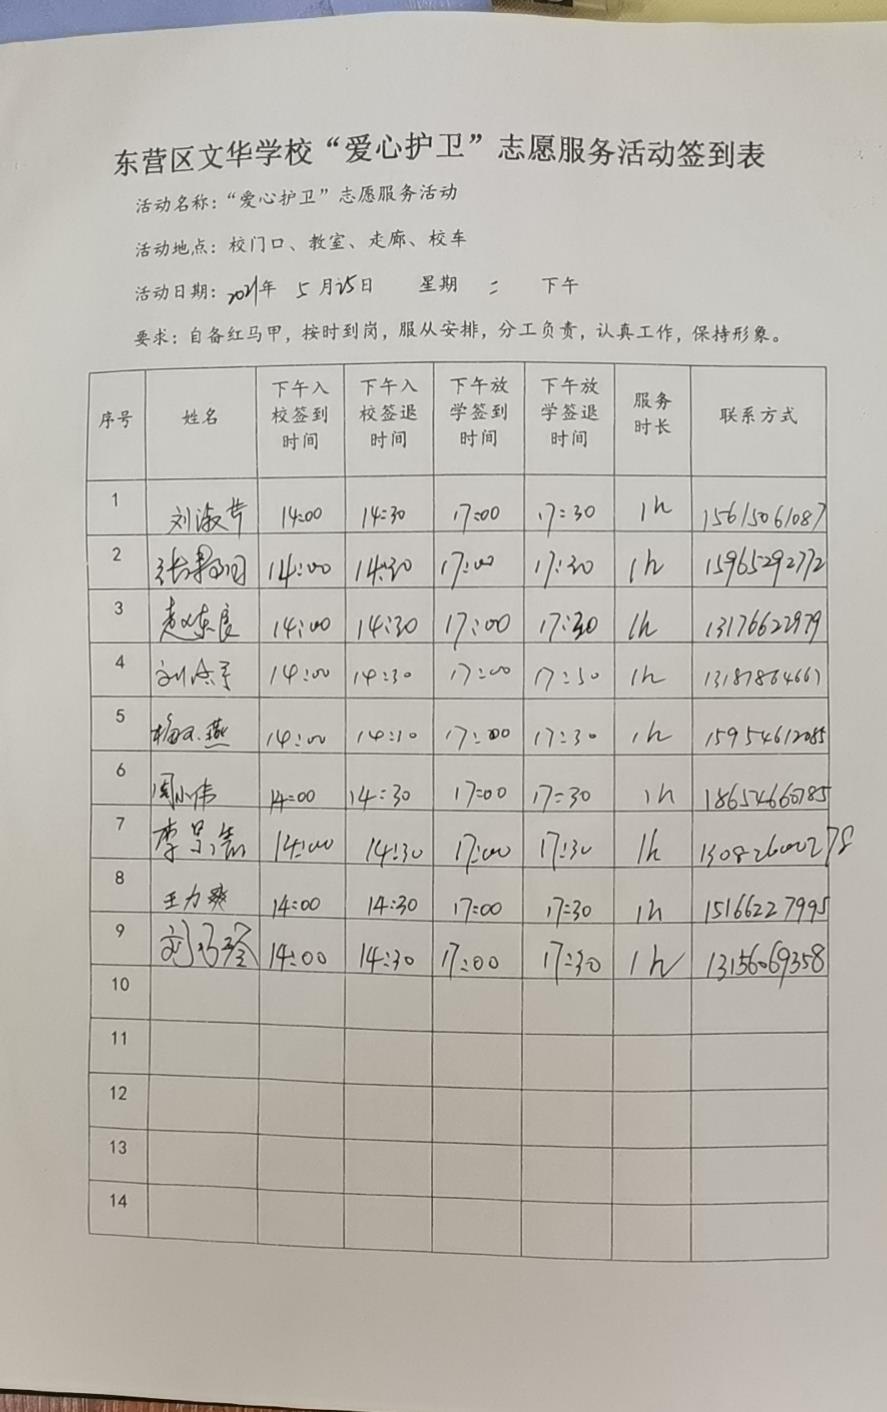 东营区文华学校“爱心护卫”志愿服务活动签到表
活动名称：“爱心护卫”志愿服务活动
活动地点：校门口、教室、走廊、校车
活动日期：2021年 5月25日 星期 二 下午
要求：自备红马甲，按时到岗，服从安排，分工负责，认真工作，保持形象。
序号 姓名 下午入校签到时间 下午入校签退时间 下午放学签到时间 下午放学签退时间 服务时长 联系方式
1 刘淑芹 14:00 14:30 17:00 17:30 1h 15615061087
2 14:00 14:30 17:00 17:30 1h 15965292772
3 14:00 14:30 17:00 17:30 1h 13176622979
4 14:00 14:30 17:00 17:30 1h
5 14:00 17:00 17:30 1h 15954612085
6 周小伟 14:00 14:30 17:00 17:30 1h 18654660785
7 14:00 14:30 17:00 17:30 1h 13082600278
8 王力爽 14:00 14:30 17:00 17:30 1h 15166227995
9 14:00 14:30 17:00 17:30 1h 13156069358
10
11
12
13
14